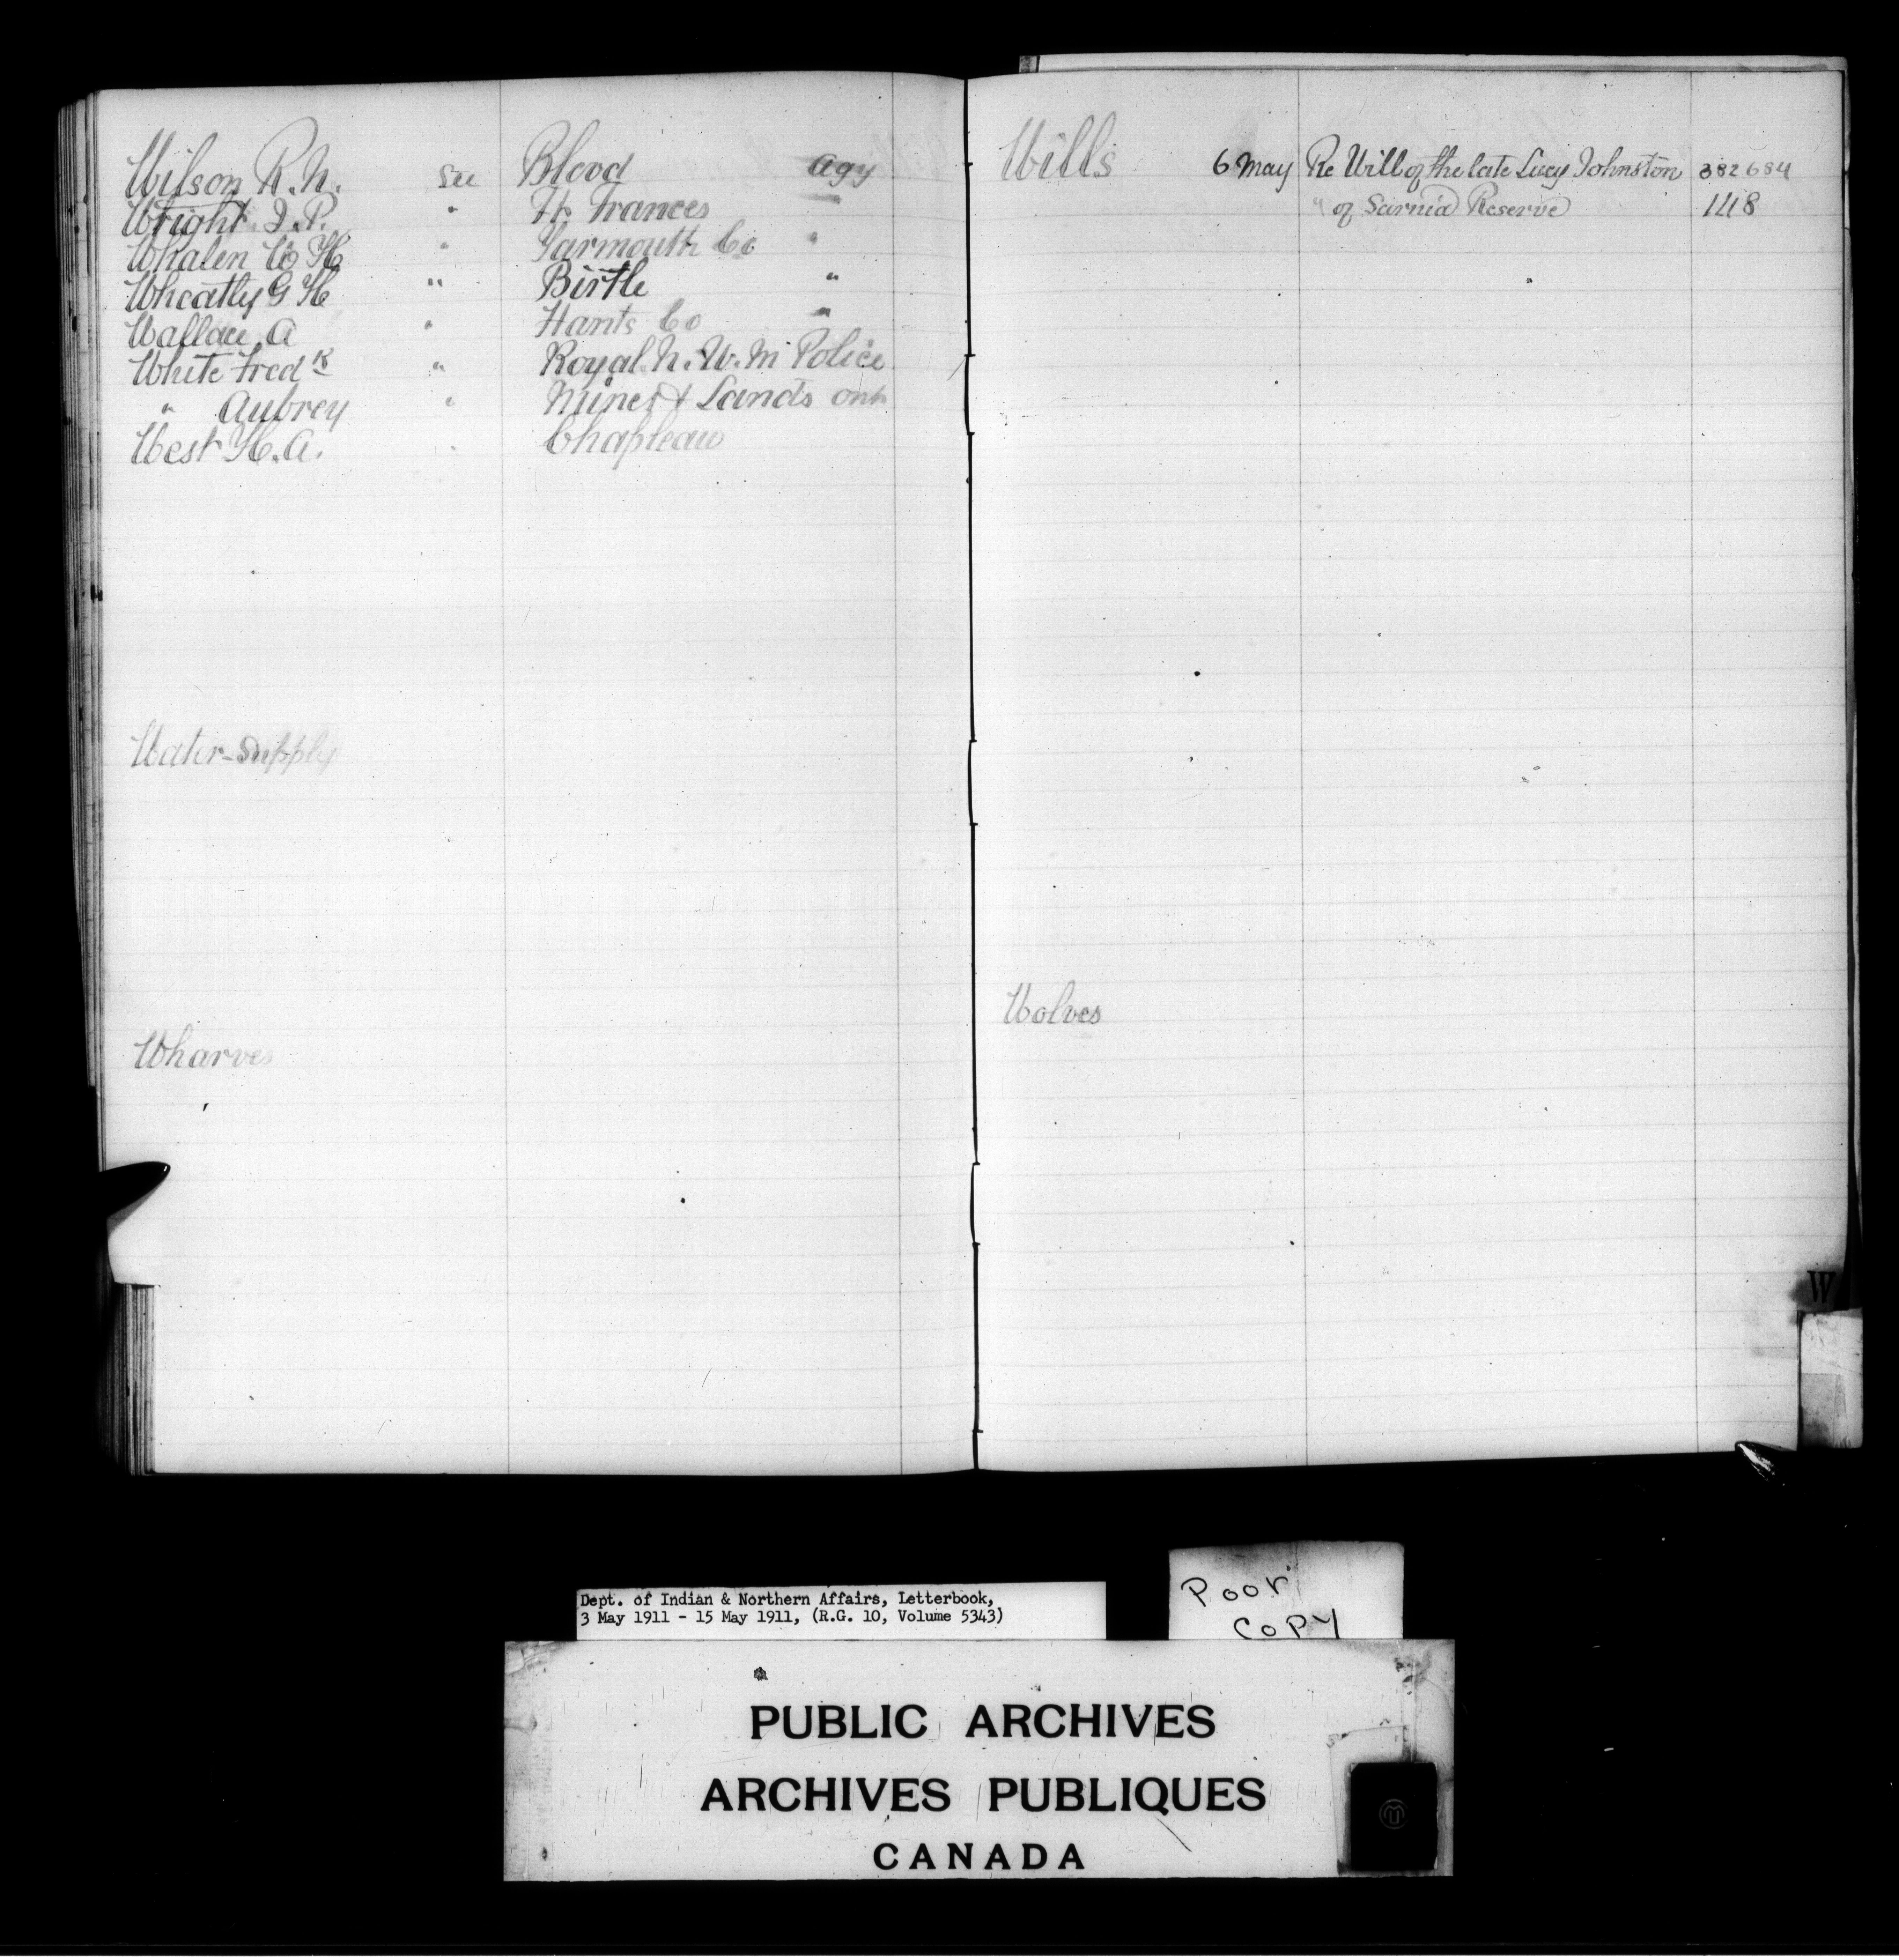 Wilson R.N. See Blood Agy
Wright J.P. " Ft. Frances "
Whalen W H " Yarmouth Co "
Wheatley G H " Birtle "
Wallace A " Hants Co "
White Fredk " Royal N.W.M Police
" Aubrey " Mines & Lands Ont
West H.A. " Chapleau
Water-Supply
Wharves
Wills 6 May Re Will of the late Lucy Johnston 382684
" of Sarnia Reserve 1418
Wolves
W
Dept. of Indian & Northern Affairs, Letterbook,
3 May 1911 - 15 May 1911, (R.G. 10, Volume 5343)
Poor
Copy
PUBLIC ARCHIVES
ARCHIVES PUBLIQUES
CANADA